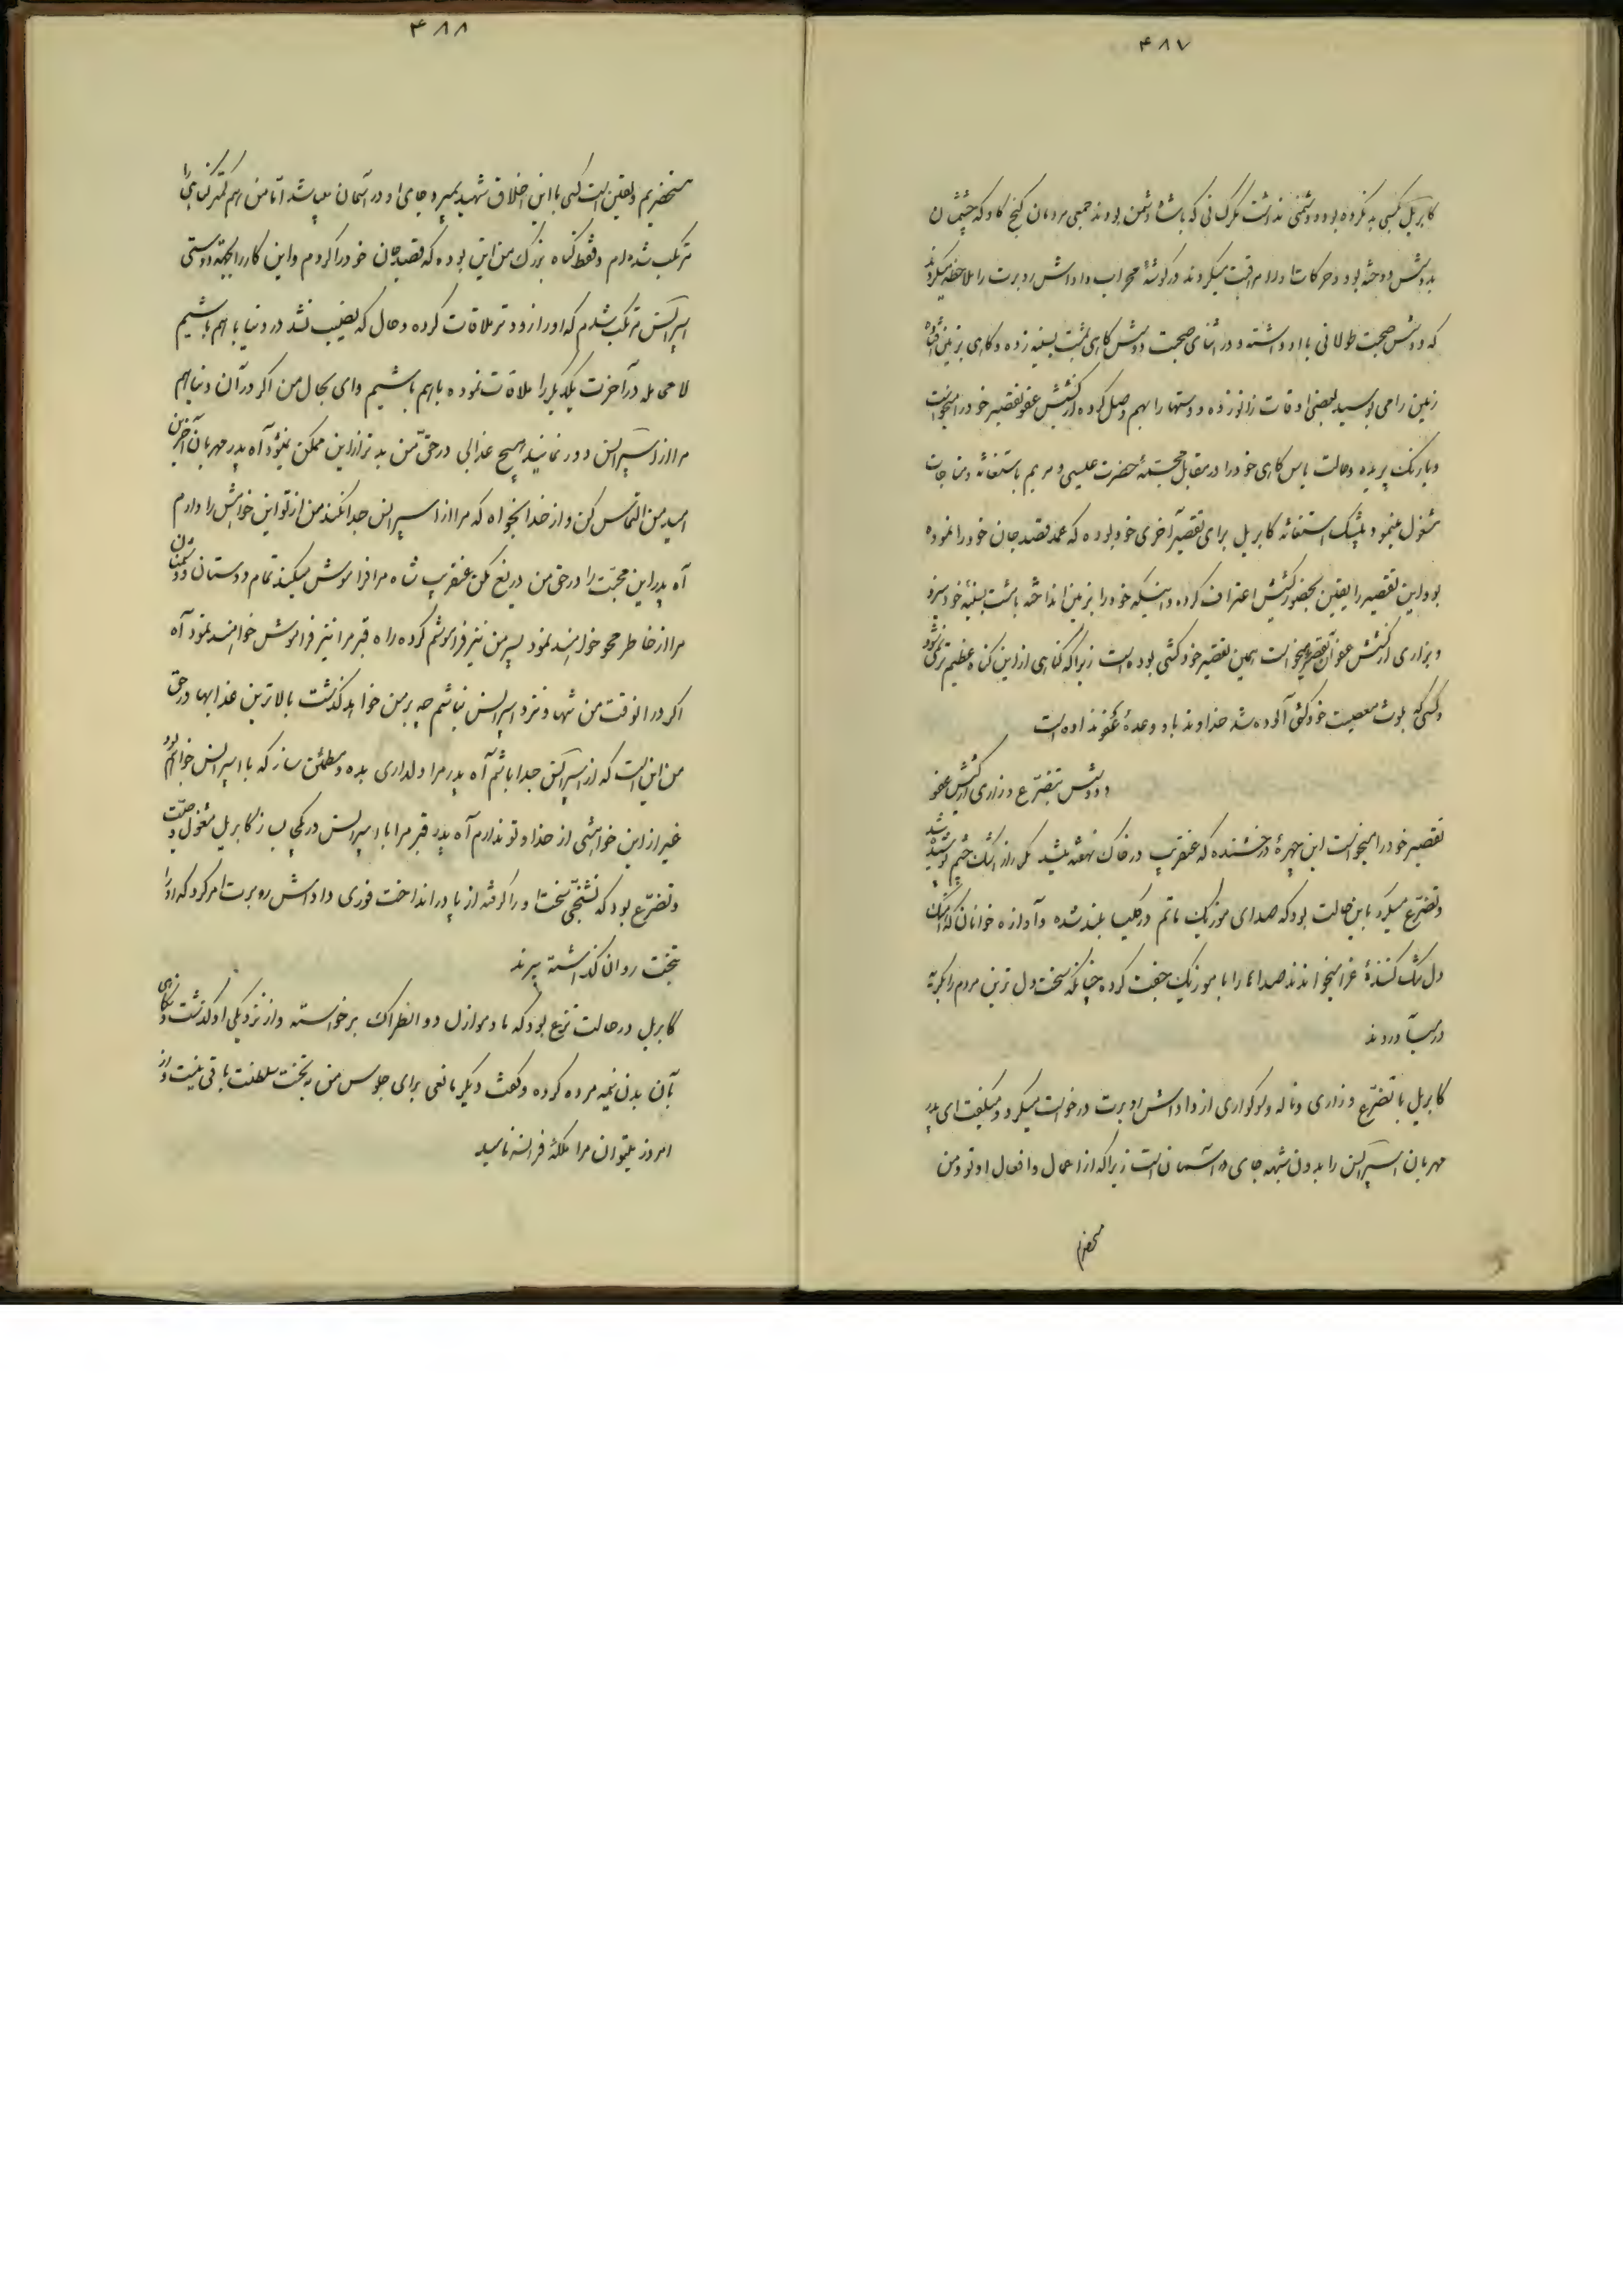 ۴۸۷
کابریل بکسی بد نکرده بود و دشمنی نداشت مگر کسانی که با شاه دشمن بودند جمعی مردمان کنج کاو که چشمشان
بدوشس دوخته بود و حرکات او را مراقبت میکردند در گوشهٔ محراب داداش روبرت را ملاحظه میکردند
که دوشس صحبت طولانی با او داشته و در اثنای صحبت دوشس کاهی مشت بسینه زده و کاهی بزمین افتاده
زمین را می بوسید بعضی اوقات زانو زده و دستها را بهم وصل کرده از کشیش عفو تقصیر خود را میخواست
و با رنک پریده و حالت یاس کاهی خود را در مقابل مجسمهٔ حضرت عیسی و مریم باستغاثه و مناجات
مشغول مینمود بیشک استغاثه کابریل برای تقصیر آخری خود بوده که عمد قصد جان خود را نموده
بود و این تقصیر را یقین بحضور کشیش اعتراف کرده و اینکه خود را بزمین انداخته با مشت بسینه خود میزد
و بزاری از کشیش عفو آن تقصیر میخواست همین تقصیر خودکشی بوده است زیرا که کناهی از این کناه عظیم تر نمیشود
و کسی که بلوث معصیت خودکشی آلوده شد خداوند باو وعدهٔ عفو نداده است
دوشس بتضرع و زاری از کشیش عفو
تقصیر خود را میخواست این چهرهٔ درخشنده که عنقریب در خاک نهفته میشد مکرر از اشک چشم پوشیده میشد
و تضرع میکرد باین حالت بود که صدای موزیک ماتم در کلیسا بلند شده و آوازه خوانان که آهنگ
دل تنگ کنندهٔ عزا میخواندند صداها را با موزیک جفت کرده چنانکه سخت دل ترین مردم را بکریه
در میآوردند
کابریل با تضرع و زاری و ناله و سوکواری از داداش روبرت درخواست میکرد و میکفت ای پدر
مهربان اسپرانس را بدون شبهه جای در آسمان است زیرا که از اعمال و افعال او تو و من
مستحضریم
۴۸۸
مستحضریم و یقین است کسی با این اخلاق شهید بمیرد جای او در آسمان میباشد اما من هم کمتر کناهی را
مرتکب شده‌ام و فقط کناه بزرک من این بوده که قصد جان خود را کردم و این کار را بجهة دوستی
اسپرانس مرتکب شدم که او را زودتر ملاقات کرده و حال که نصیب نشد در دنیا با هم باشیم
لا محاله در آخرت یکدیکر را ملاقات نموده باهم باشیم وای بحال من اکر در آن دنیا هم
مرا از اسپرانس دور نمایند هیچ عذابی در حق من بدتر از این ممکن نمیشود آه پدر مهربان آخرین
امید من التماس کن و از خدا بخواه که مرا از اسپرانس جدا نکند من از تو این خواهش را دارم
آه پدر این محبت را در حق من دریغ مکن عنقریب شاه مرا فراموش میکند تمام دوستان و دشمنان
مرا از خاطر محو خواهند نمود پسر من نیز فراموشم کرده راه قبر مرا نیز فراموش خواهند نمود آه
اکر در آنوقت من تنها و نزد اسپرانس نباشم چه بر من خواهد کذشت بالاترین عذابها در حق
من این است که از اسپرانس جدا باشم آه پدر مرا دلداری بده و مطمئن ساز که با اسپرانس خواهم بود
غیر از این خواهشی از خدا و تو ندارم آه پدر قبر مرا با اسپرانس در یکجا بساز کابریل مشغول صحبت و
و تضرع بود که تشنجی سخت او را کرفته از پا در انداخت فوری داداش روبرت امر کرد که او را
بتخت روان کذاشته ببرند
کابریل در حالت نزع بود که مادموازل دوانطراک برخواسته و از نزدیکی او کذشت و نکاهی
بآن بدن نیمه مرده کرده و کفت دیکر مانعی برای جلوس من به تخت سلطنت باقی نیست و از
امروز میتوان مرا ملکهٔ فرانسه نامید